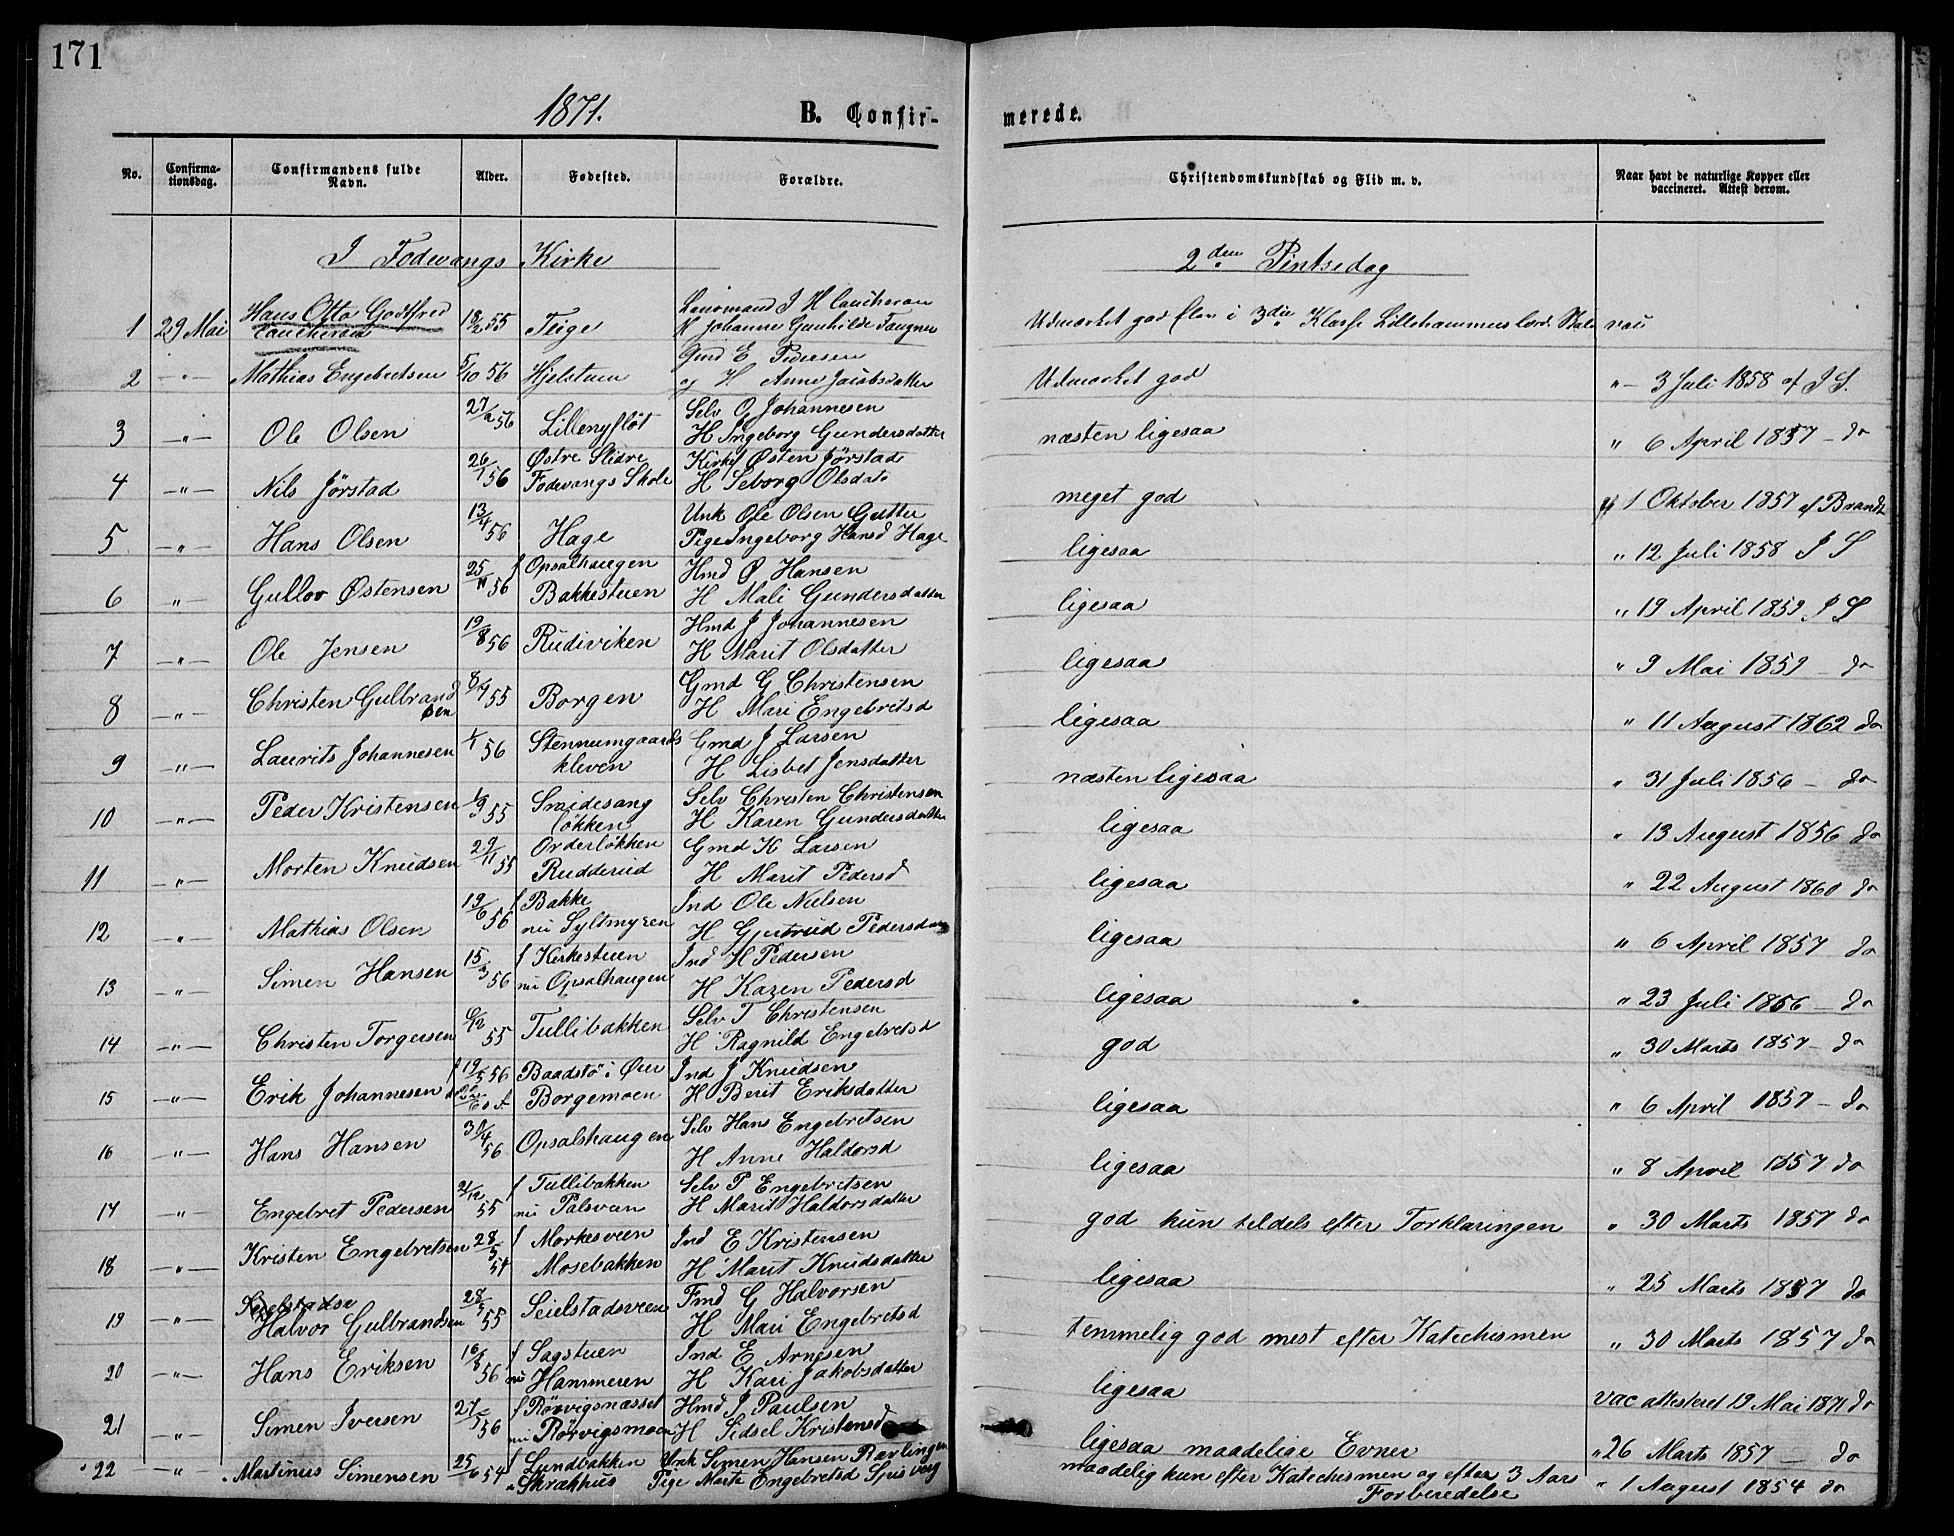 171
1871. B. Confirmerede.
No. Confirmationsdag. Confirmandens fulde Navn. Alder. Fødested. Forældre. Christendomskundskab og Flid m. v. Naar havt de naturlige Kopper eller vaccineret. Attest derom.
I Fodvangs Kirke 2den Pintsedag
1 29 Mai Hans Otto Godtfred 18/2 55 Teige H Johanne Gunhilde Udmærket god Elev i 3die Klasse Lillehammers vac
2 -"- Mathias Engebretsen 5/10 56 Hjelstuen Gmd E Pedersen og H Anne Jacobsdatter Udmærket god "- 3 Juli 1858 af J S.
3 -"- Ole Olsen 27/2 56 Lillenyflöt Selv O Johannesen H Ingeborg Gundersdatter næsten ligesaa " 6 April 1857 - do
4 -"- Nils Jörstad 26/1 56 Østre Slidre Fodvangs Skole Kirkes Østen Jörstad H Seborg Olsdat. meget god 1 Oktober 1857 af Brandt
5 -"- Hans Olsen 13/4 56 Hage Unk Ole Olsen Gutter Pige Ingeborg Hansd Hage ligesaa " 12 Juli 1858 J S
6 -"- Gullov Østensen 25/11 56 f Opsalhaugen Bakkestuen Hmd Ø Hansen H Mali Gundersdatter ligesaa " 19 April 1859 J S
7 -"- Ole Jensen 19/8 56 Rudiviken Hmd J Johannesen H Marit Olsdatter ligesaa " 9 Mai 1859 - do
8 -"- Christen Gulbrandsen 8/7 55 Borgen Gmd G Christensen H Mari Engebretsd ligesaa " 11 August 1862 do
9 -"- Laurits Johannesen 1/1 56 Stennumgaardskleven Gmd J Larsen H Lisbet Jensdatter næsten ligesaa " 31 Juli 1856 - do
10 -"- Peder Kristensen 1/9 55 løkken Selv Christen Christensen H Karen Gundersdatter ligesaa " 13 August 1856 do
11 -"- Morten Knudsen 29/11 55 Orderløkken Rudderud Gmd K Larsen H Marit Pedersd ligesaa " 22 August 1860 do
12 -"- Mathias Olsen 19/6 56 f Bakke nu Syltmyren Ind Ole Nielsen H Gjertrud Pedersdat ligesaa " 6 April 1857 do
13 -"- Simen Hansen 15/3 56 f Kirkestuen nu Opsalhaugen Ind H Pedersen H Karen Pedersd ligesaa " 23 Juli 1866 - do
14 -"- Christen Torgersen 6/12 55 Tullibakken Selv T Christensen H Ragnild Engebretsd god " 30 Marts 1857 - do
15 -"- Erik Johannesen f 19/5 56 Baadstö i Øier Borgemoen Ind J Knudsen H Berit Eriksdatter ligesaa " 6 April 1857 - do
16 -"- Hans Hansen 30/4 56 Opsalshaugen Selv Hans Engebretsen H Anne Haldorsd ligesaa " 8 April 1857 do
17 -"- Engebret Pedersen 21/12 55 f Tullibakken nu Palsveen Selv P Engebretsen H Marit Haldorsdatter god kun tildels efter Forklaringen " 30 Marts 1857 do
18 -"- Kristen Engebretsen 28/5 54 f Morkesveen Mosebakken Ind E Kristensen H Marit Knudsdatter ligesaa " 25 Marts 1857 do
19 -"- Seielstadsv Halvor Gulbrandsen 28/5 55 Seielstadsveen Fmd G Halvorsen H Mari Engebretsd temmelig god mest efter Katechismen " 30 Marts 1857 do
20 -"- Hans Eriksen 16/5 56 f Sagstuen nu Hammeren Ind E Arnesen H Kari Jakobsdatter ligesaa vac attesteret 19 Mai 1871 do
21 -"- Simen Iversen 27/1 56 f Rørvigsnæsset nu Rørvigsmoen Hmd J Paulsen H Sidsel Kristensd ligesaa maadelige Evner " 26 Marts 1857 - do
22 -"- Martinus Simensen 25/6 54 f Lundbakken " Skrækhus Unk Simen Hansen Pige Marte Engebretsd maadelig kun efter Katechismen og efter 3 Aars Forberedelse " 1 August 1854 do